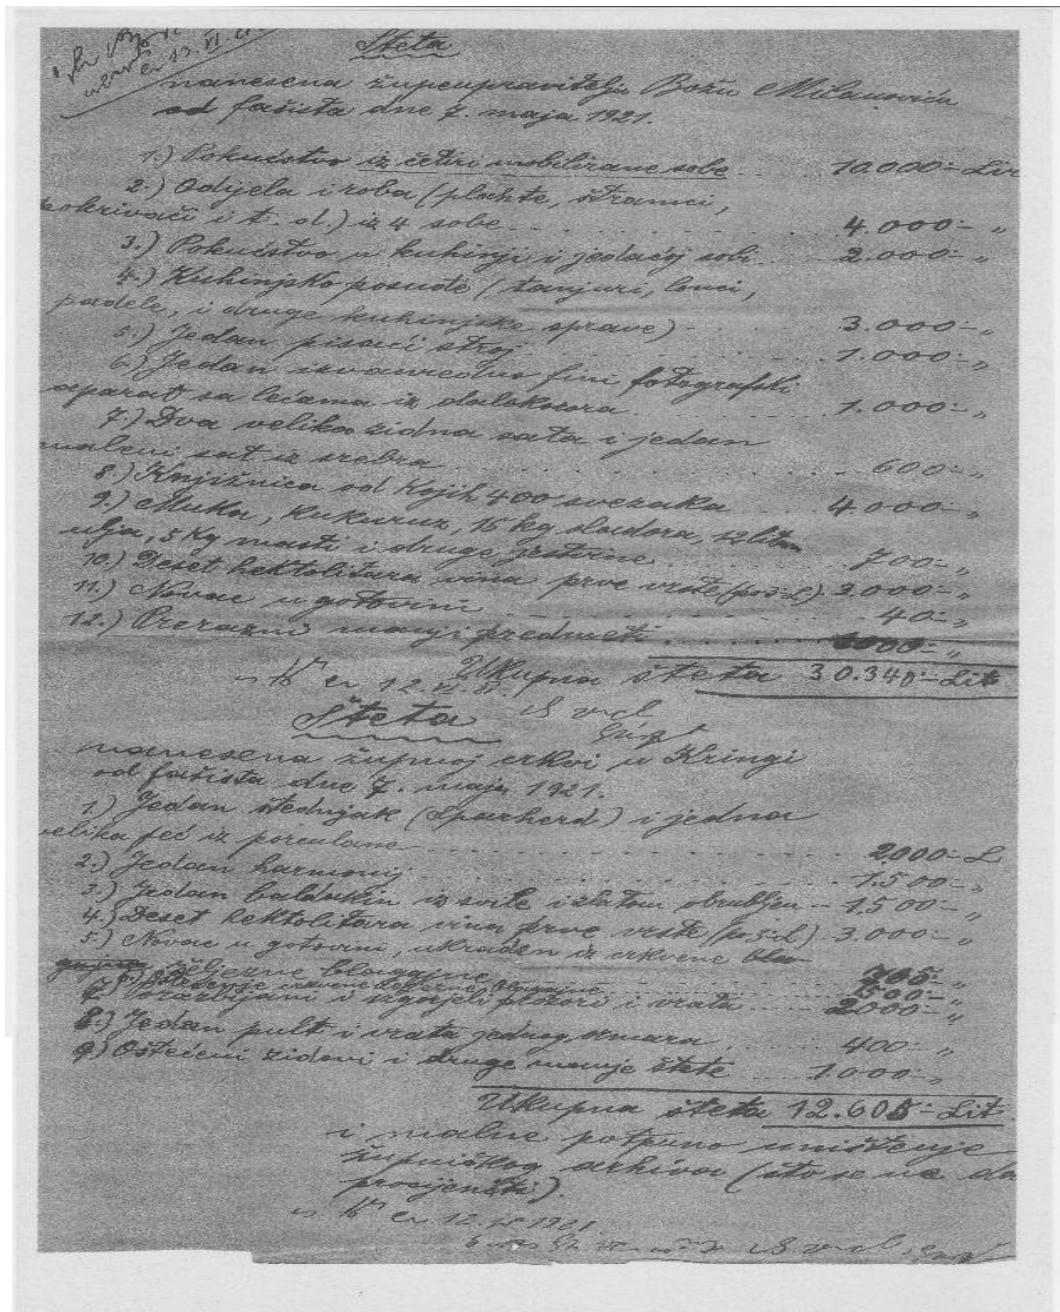 Šteta
nanesena župeupravitelju Božu Milanoviću
od fašista dne 7. maja 1921.
1.) Pokućstvo iz četiri mobilirane sobe 10.000·- Lir
2.) Odijela i roba (plahte, štramci,
pokrivači i t. d.) iz 4 sobe 4.000·- "
3.) Pokućstvo u kuhinji i jedaćoj sobi 2.000·- "
4.) Kuhinjsko posuđe (tanjuri, lonci,
padele, i druge kuhinjske sprave) 3.000·- "
5.) Jedan pisaći stroj 1.000·- "
6.) Jedan izvanredno fini fotografski
aparat sa lećama iz dalekozora 1.000·- "
7.) Dva velika zidna sata i jedan
maleni sat iz srebra 600·- "
8.) Knjižnica od kojih 400 svezaka 4.000·- "
9.) Muka, kukuruz, 15 kg sladora, 12 lit
ulja, 5 kg masti i druge jestvine 700·- "
10.) Deset hektolitara vina prve vrste (po 3·L) 3.000·- "
11.) Novac u gotovini 40·- "
12.) manji predmeti 1000·- "
Ukupna šteta 30.340·- Lit
Šteta
nanesena župnoj crkvi u Kringi
od fašista dne 7. maja 1921.
1.) Jedan štednjak (Sparherd) i jedna
velika peć iz porculane 2000·- L
2.) Jedan harmonij 1.500·- "
3.) Jedan baldakin iz svile i zlatom obrubljen 1.500·- "
4.) Deset hektolitara vina prve vrste (po 3·L) 3.000·- "
5.) Novac u gotovini, ukraden iz crkvene
željezne blagajne 705·- "
6.) crkvene blagajne 500·- "
7.) Porazbijani i izgorjeli prozori i vrata 2000·- "
8.) Jedan pult i vrata jednog ormara 400·- "
9.) Oštećeni zidovi i druge manje štete 1000·- "
Ukupna šteta 12.605·- Lit
i malne potpuno uništenje
župničkog arhiva (što se ne da
procijeniti).